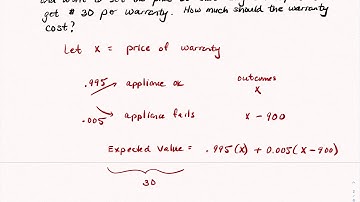 get $30 per warranty. How much should the warranty
cost?
Let x = price of warranty
outcomes
.995 appliance ok x
.005 appliance fails x - 900
Expected Value = .995(x) + 0.005(x-900)
30